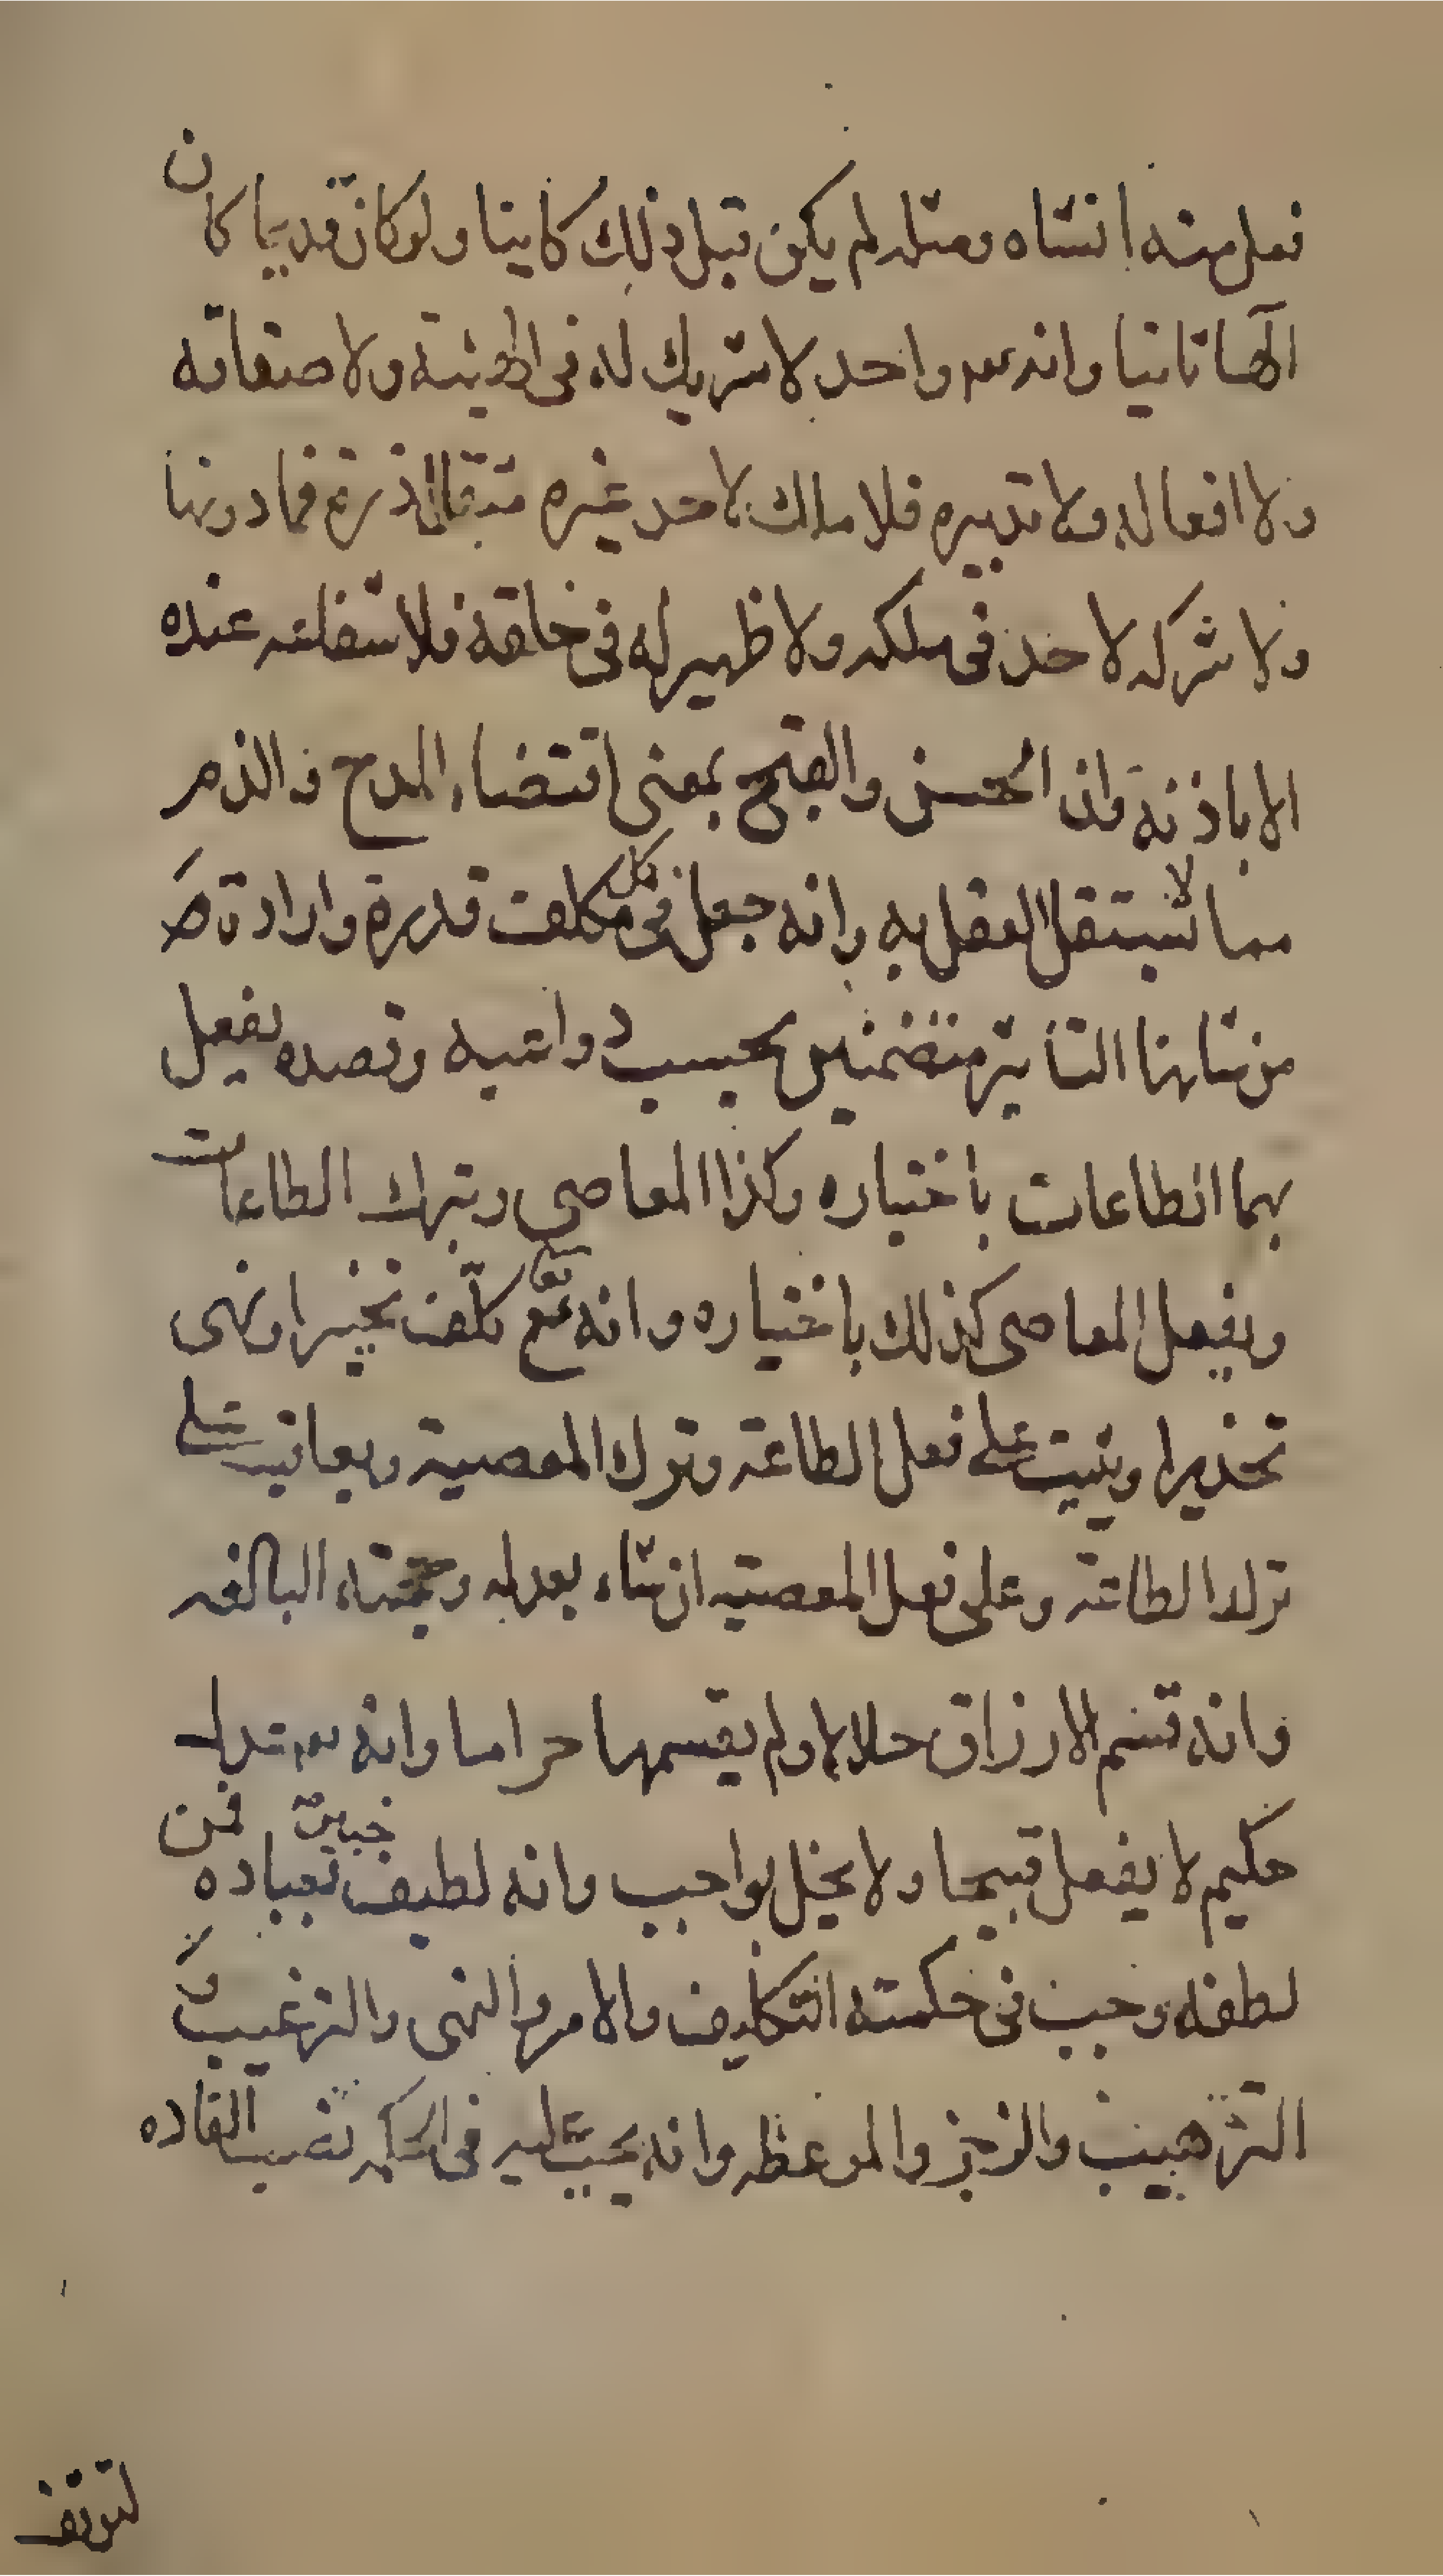 فعل منه انشاه ومثله لم يكن قبل ذلك كاينا ولو كان قديما كان
الٓها ثانيا وانه واحد لا شريك له فى الهيته ولا صفاته
ولا افعاله ولا تدبيره فلا ملك لاحد غيره مثقال ذرة فما دونها
ولا شركه لاحد فى ملكه ولا ظهير له فى خلقه فلا شفاعه عنده
الا باذنه وان الحسن والقبح بمعنى اقتضاء المدح والذم
مما لا يستقل العقل به وانه جعل فى كل مكلف قدرة وارادة
من شانها التاثير منضمين بحسب دواعيه وقصده يفعل
بهما الطاعات باختياره وكذا المعاصى ويترك الطاعات
ويفعل المعاصى كذلك باختياره وانه تع كلّف تخييرا ونهى
تحذيرا ويثيب على فعل الطاعة وترك المعصية ويعاقب على
ترك الطاعة وعلى فعل المعصيه ان شاء بعدله وحجته البالغه
وانه قسم الارزاق حلالا ولم يقسمها حراما وانه عدل
حكيم لا يفعل قبيحا ولا يخل بواجب وانه لطيف خبير بعباده فمن
لطفه وجب فى حكمته التكليف والامر والنهى والترغيب و
الترهيب والزجر والموعظه وانه يجب عليه فى الحكمه نصب القاده